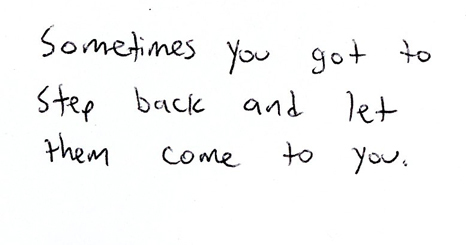 Sometimes you got to
step back and let
them come to you.